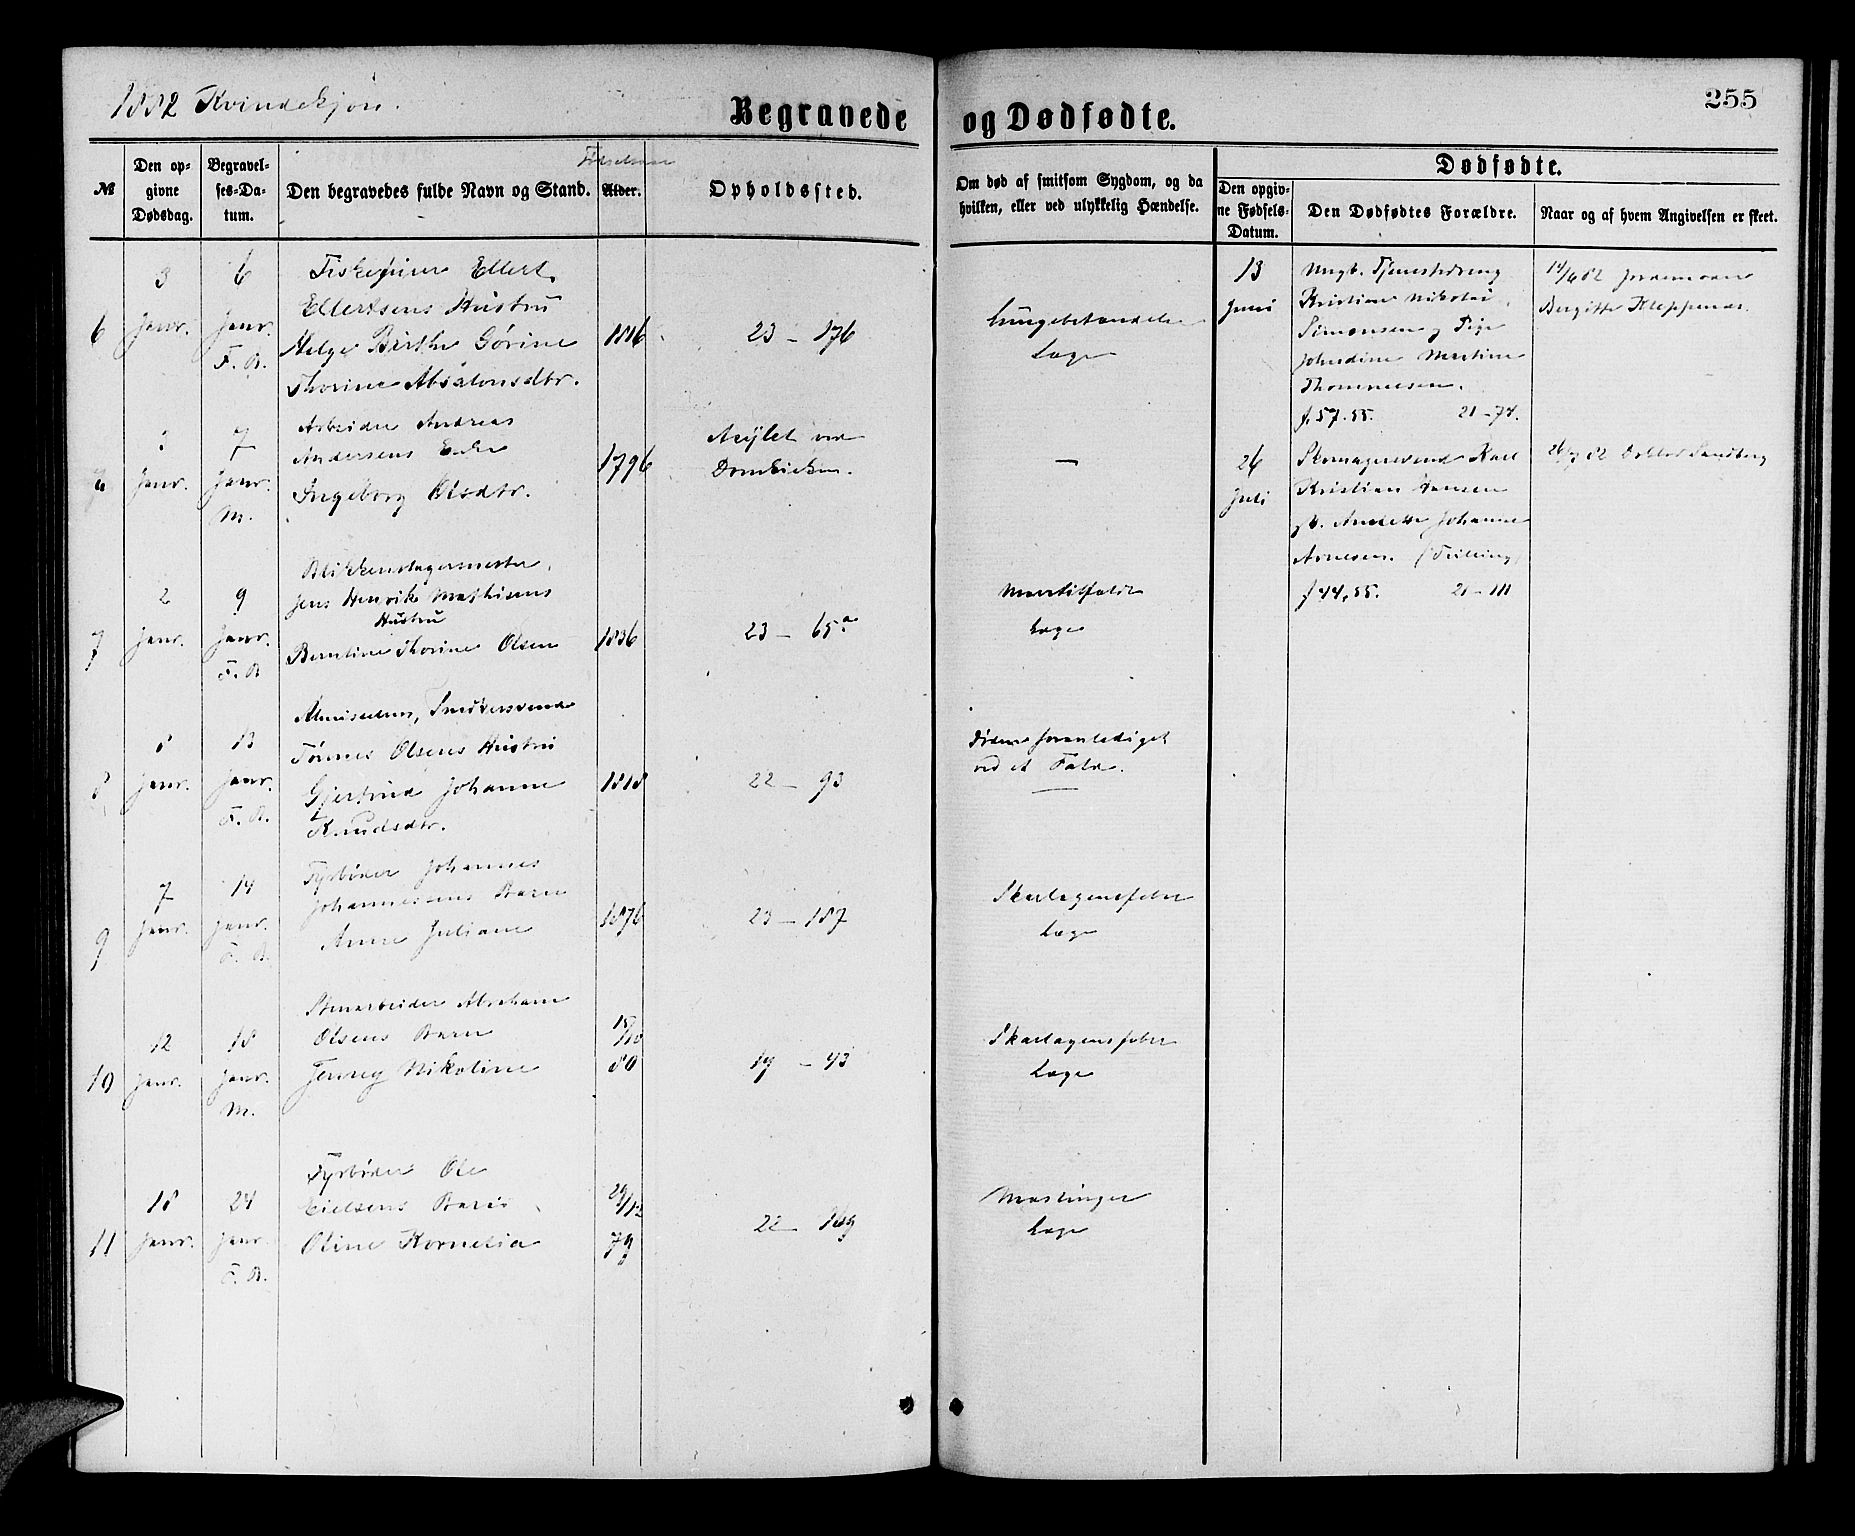 1882 Kvindekjøn.
Begravede og Dødfødte.
255
№
Den opgivne Dødsdag.
Begravelses-Datum.
Den begravedes fulde Navn og Stand.
Alder.
Opholdssted.
Om død af smitsom Sygdom, og da hvilken, eller ved ulykkelig Hændelse.
Dødfødte.
Den opgivne Fødsels-Datum.
Den Dødfødtes Forældre.
Naar og af hvem Angivelsen er skeet.
6
3
Janr.
6
Janr.
F. B.
Ellert
Ellertsens Hustru
Helge Birthe Gørine
Thorine Absalonsdtr.
1816
23 – 176
Lungebetændelse
Læge
7
Janr.
7
Janr.
M.
Arbeider Andreas
Andersens Enke
Ingeborg Olsdtr.
1796
Asylet ved
Domkirken.
—
7
2
Janr.
9
Janr.
F. B.
Blikkenslagermester
Jens Henrik Mathisens
Hustru
Berntine Thorine Olsen
1836
23 – 65a
Læge
8
8
Janr.
13
Janr.
F. B.
Almisselem,
Tønnes Olsens Hustru
Gjertrud Johanne
Knudsdtr.
1818
22 – 93
Døden foranlediget
ved et Fald.
9
7
Janr.
14
Janr.
F. B.
Fyrbøder Johannes
Johannessens Barn
Anne Juliane
1876
23 – 187
Skarlagensfeber
Læge
10
12
Janr.
18
Janr.
M.
Stenarbeider Abraham
Olsens Barn
Jenny Nikoline
15/10
80
19 – 43
Skarlagensfeber
Læge
11
18
Janr.
24
Janr.
F. B.
Fyrbøder Ole
Eielsens Barn
Oline Kornelia
29/12
79
22 – 169
Mæslinger
Læge
13
Juni
Ungk. Tjenestedreng
Kristian Nikolai
Simonsen og Pige
Johndine Martine
Thommesen.
f. 57. 55. 21 – 74.
14/6 82 Jordemoder
Bergitte Kleppenæs.
26
Juli
Skomagersvend Karl
Kristian Hansen
Johanne
Arnesen. (Tvilling)
f 44, 55. 21 – 111
26/7 82 Doktor Sandberg